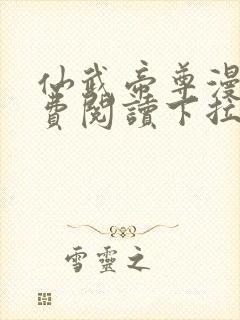 仙武帝尊漫
費閱讀下拉
雪靈之